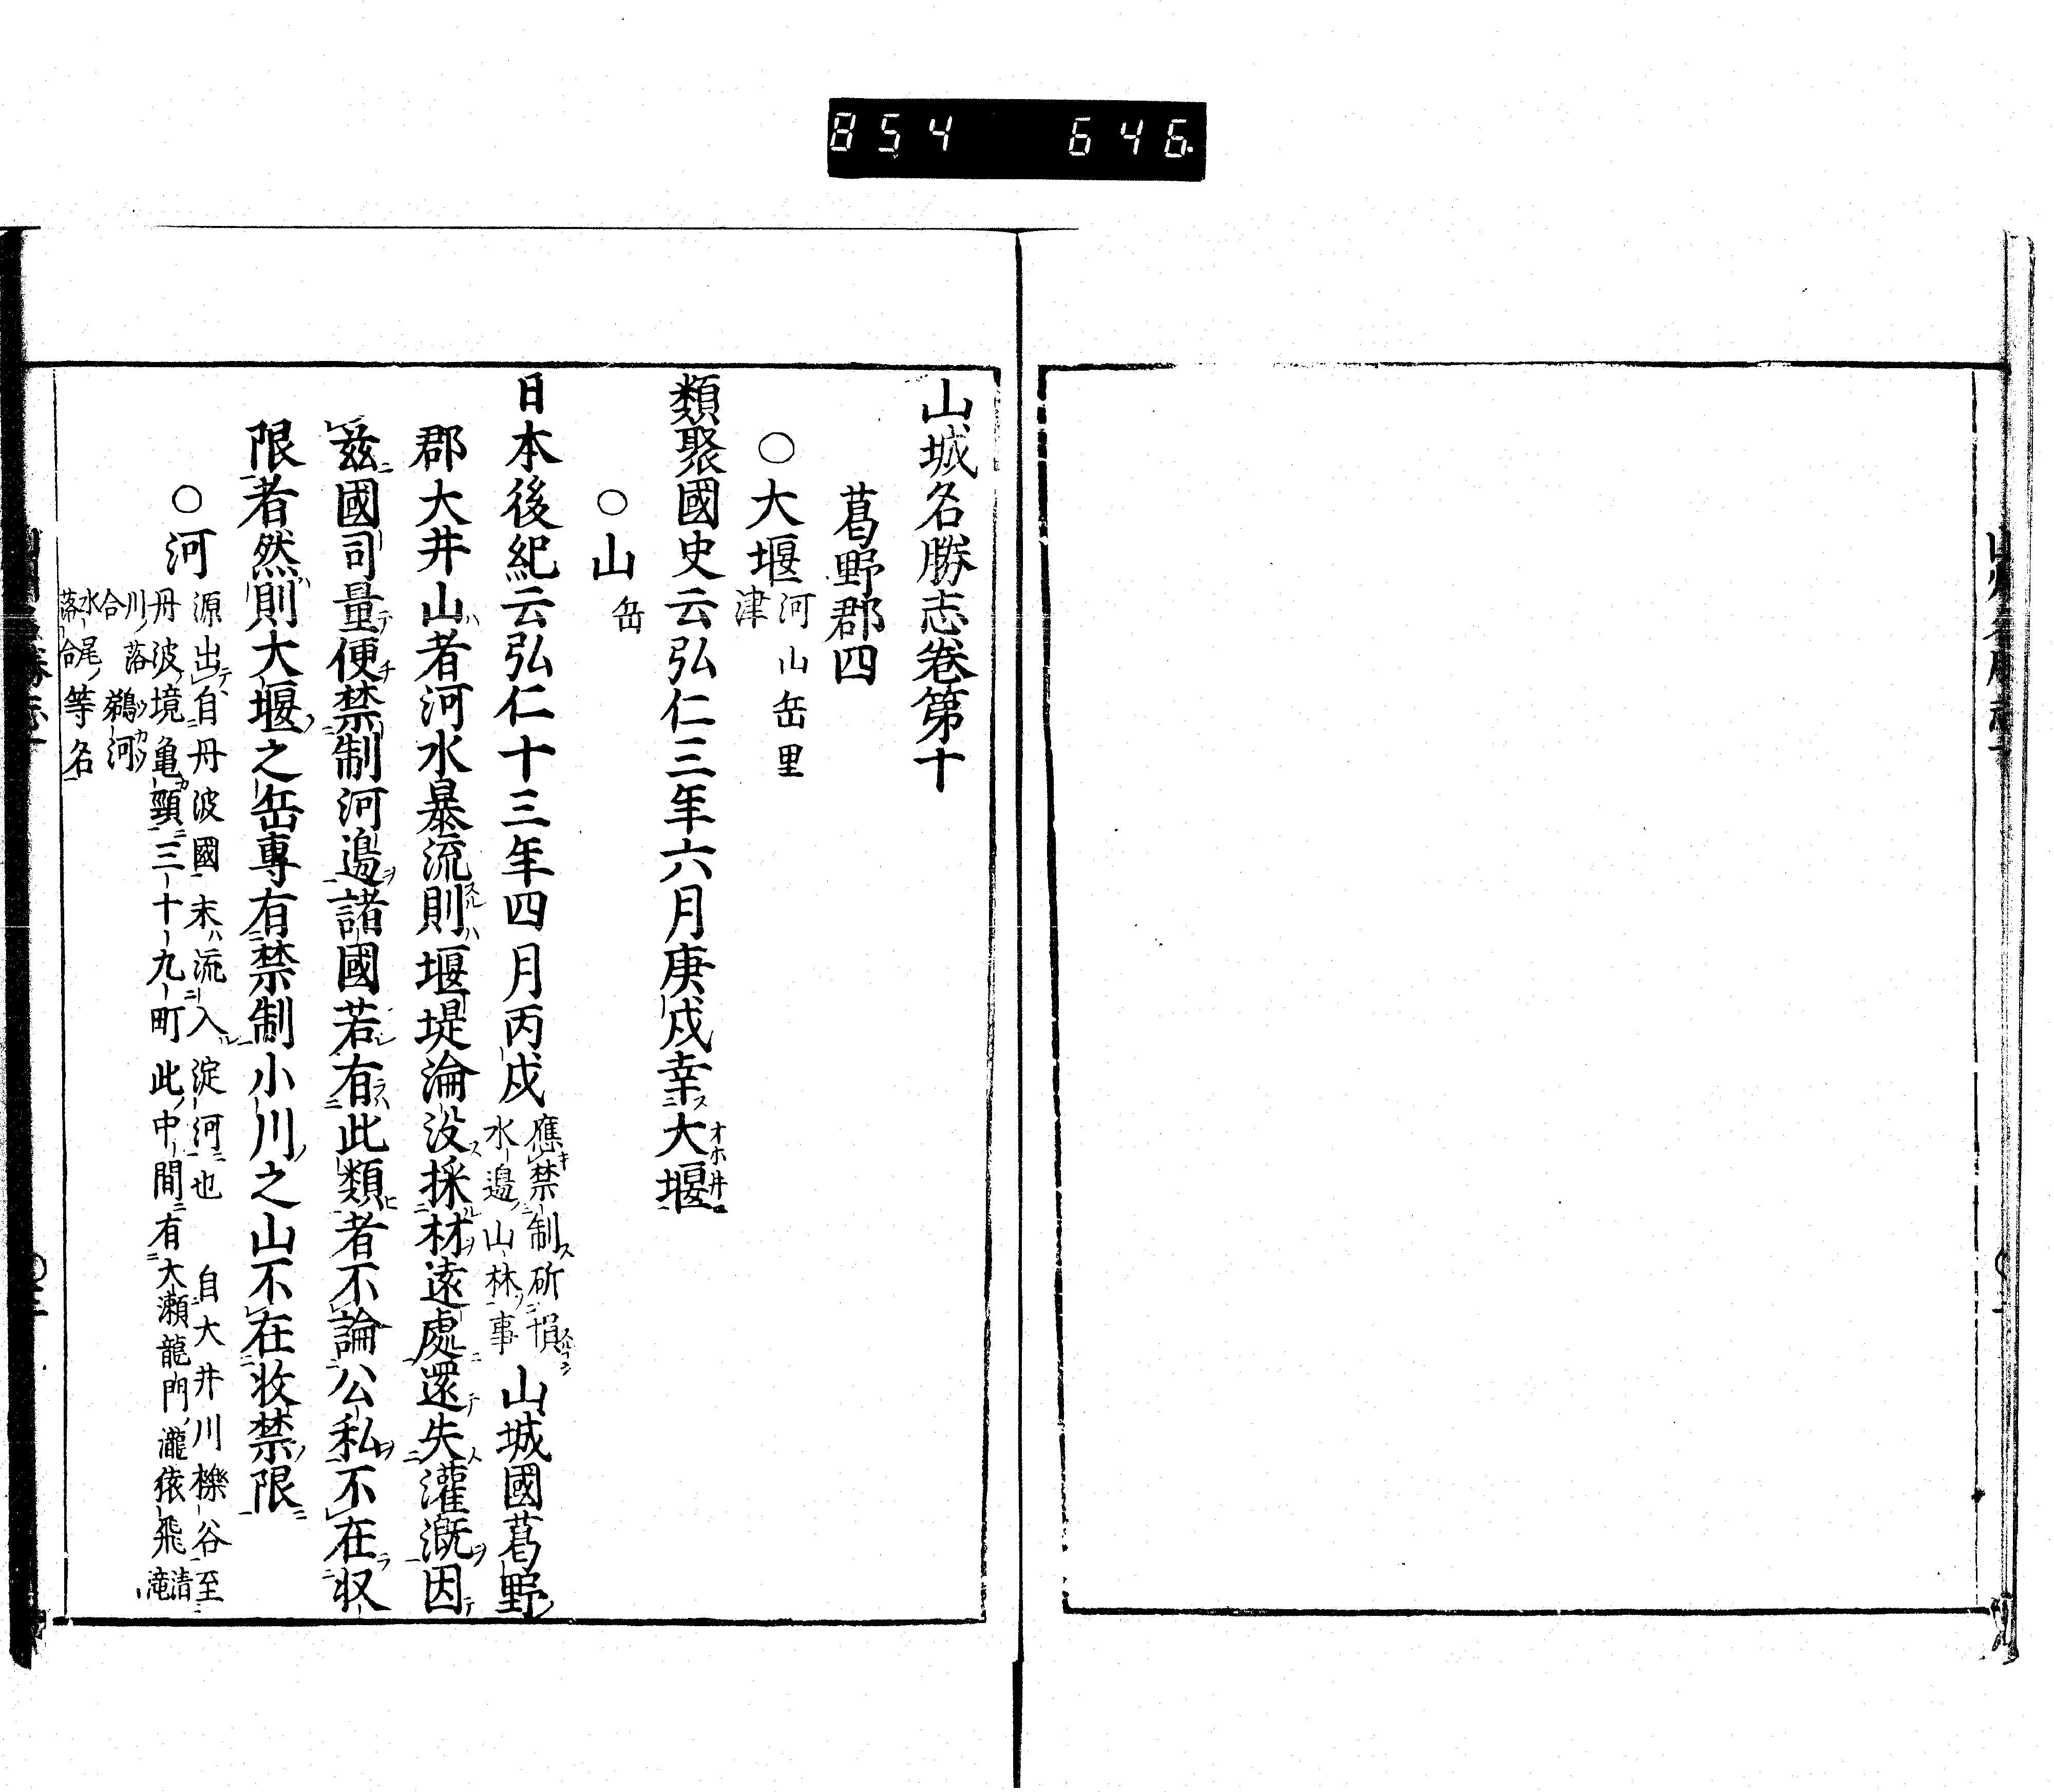 854 646
山城名勝志卷第十
葛野郡四
○大堰 河 山 岳 里 津
類聚國史云弘仁三年六月庚戌幸ス大堰オホ井ニ
○山 岳
日本後紀云弘仁十三年四月丙戌 應禁制斫損水邊山林事 山城國葛野
郡大井山者河水暴流則堰堤淪沒採材遠處還失灌漑因
茲國司量便禁制河邊諸國若有此類者不論公私不在收
限者然則大堰之岳專有禁制小川之山不在收禁限
○河 源出自丹波國末ハ流入淀河也 自大井川櫟谷至
丹波境亀頸三十九町此中間有大瀬龍門瀧猿飛滝清
川落合 鵜河
水尾落合等名